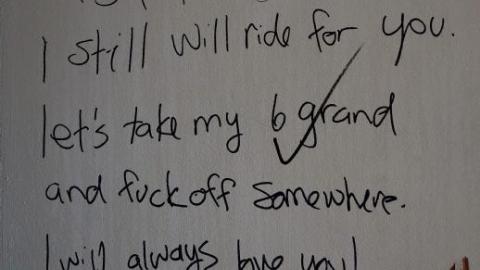 I still will ride for you.
let's take my 6 grand
and fuck off somewhere.
I will always love you!